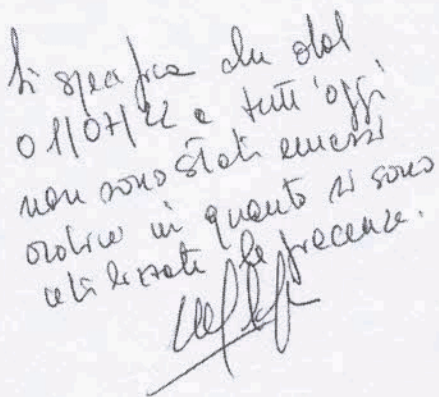 Si specifica che dal
01/07/22 a tutt'oggi
non sono stati emessi
ordini in quanto si sono
utilizzate le giacenze.